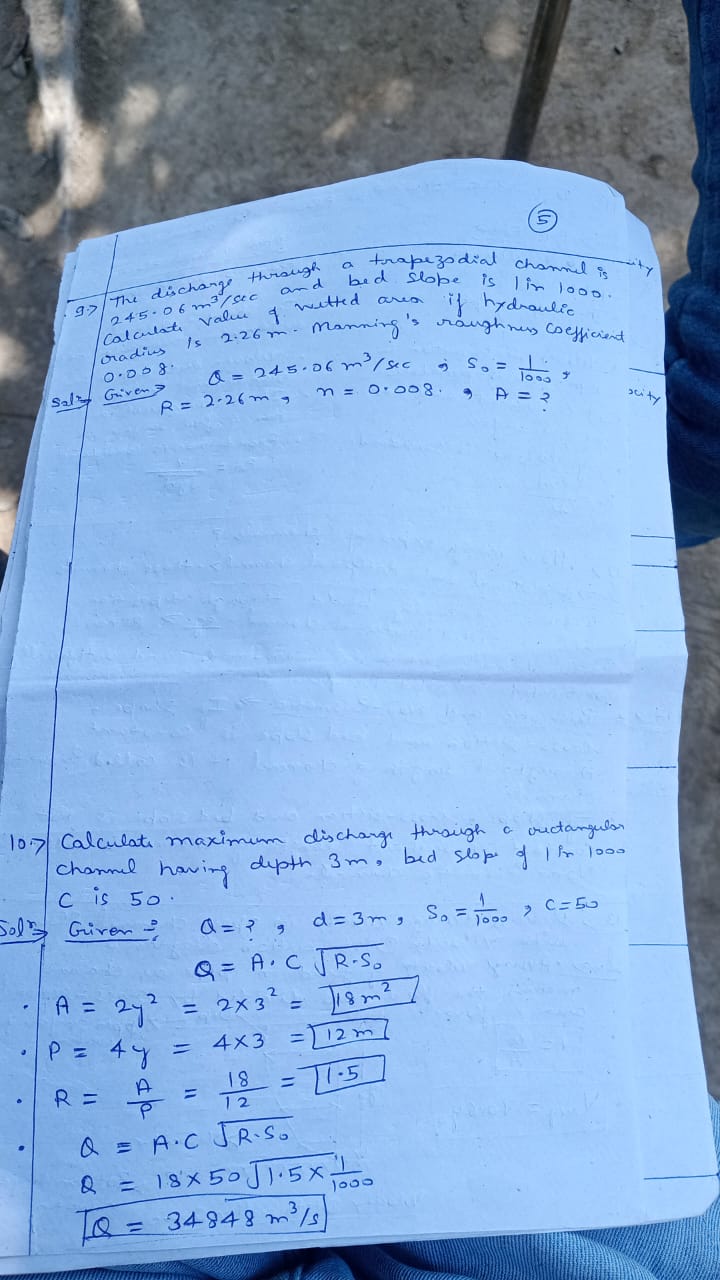 5
9.> The discharge through a trapezodial channel is
245.06 m³/sec and bed slope is 1 in 1000.
Calculate value of wetted area if hydraulic
radius is 2.26 m. Manning's roughness coefficient
0.008.
Solⁿ> Given> Q = 245.06 m³/sec ; S₀ = 1/1000 ,
R = 2.26 m , n = 0.008. , A = ?
ity
ocity
10.> Calculate maximum discharge through a rectangular
channel having depth 3m, bed slope of 1 in 1000
C is 50.
Solⁿ> Given :- Q = ? , d = 3m , S₀ = 1/1000 , C = 50
Q = A.C √R.S₀
. A = 2y² = 2×3² = 18 m²
. P = 4y = 4×3 = 12 m
. R = A/P = 18/12 = 1.5
. Q = A.C √R.S₀
Q = 18×50 √1.5×1/1000
Q = 34848 m³/s